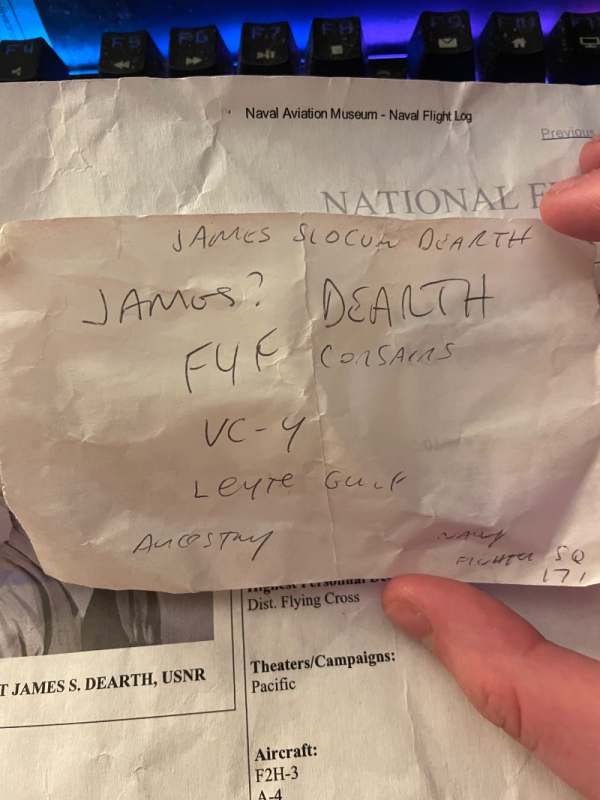 F4 F5 F6 F7 F8 F9 F10 F11
Naval Aviation Museum - Naval Flight Log
Previous
NATIONAL F
JAMES SLOCUM DEARTH
JAMES? DEARTH
F4F CORSAIRS
VC-4
LEYTE GULF
ANCESTRY
NAVY
FIGHTER SQ
171
Dist. Flying Cross
T JAMES S. DEARTH, USNR
Theaters/Campaigns:
Pacific
Aircraft:
F2H-3
A-4